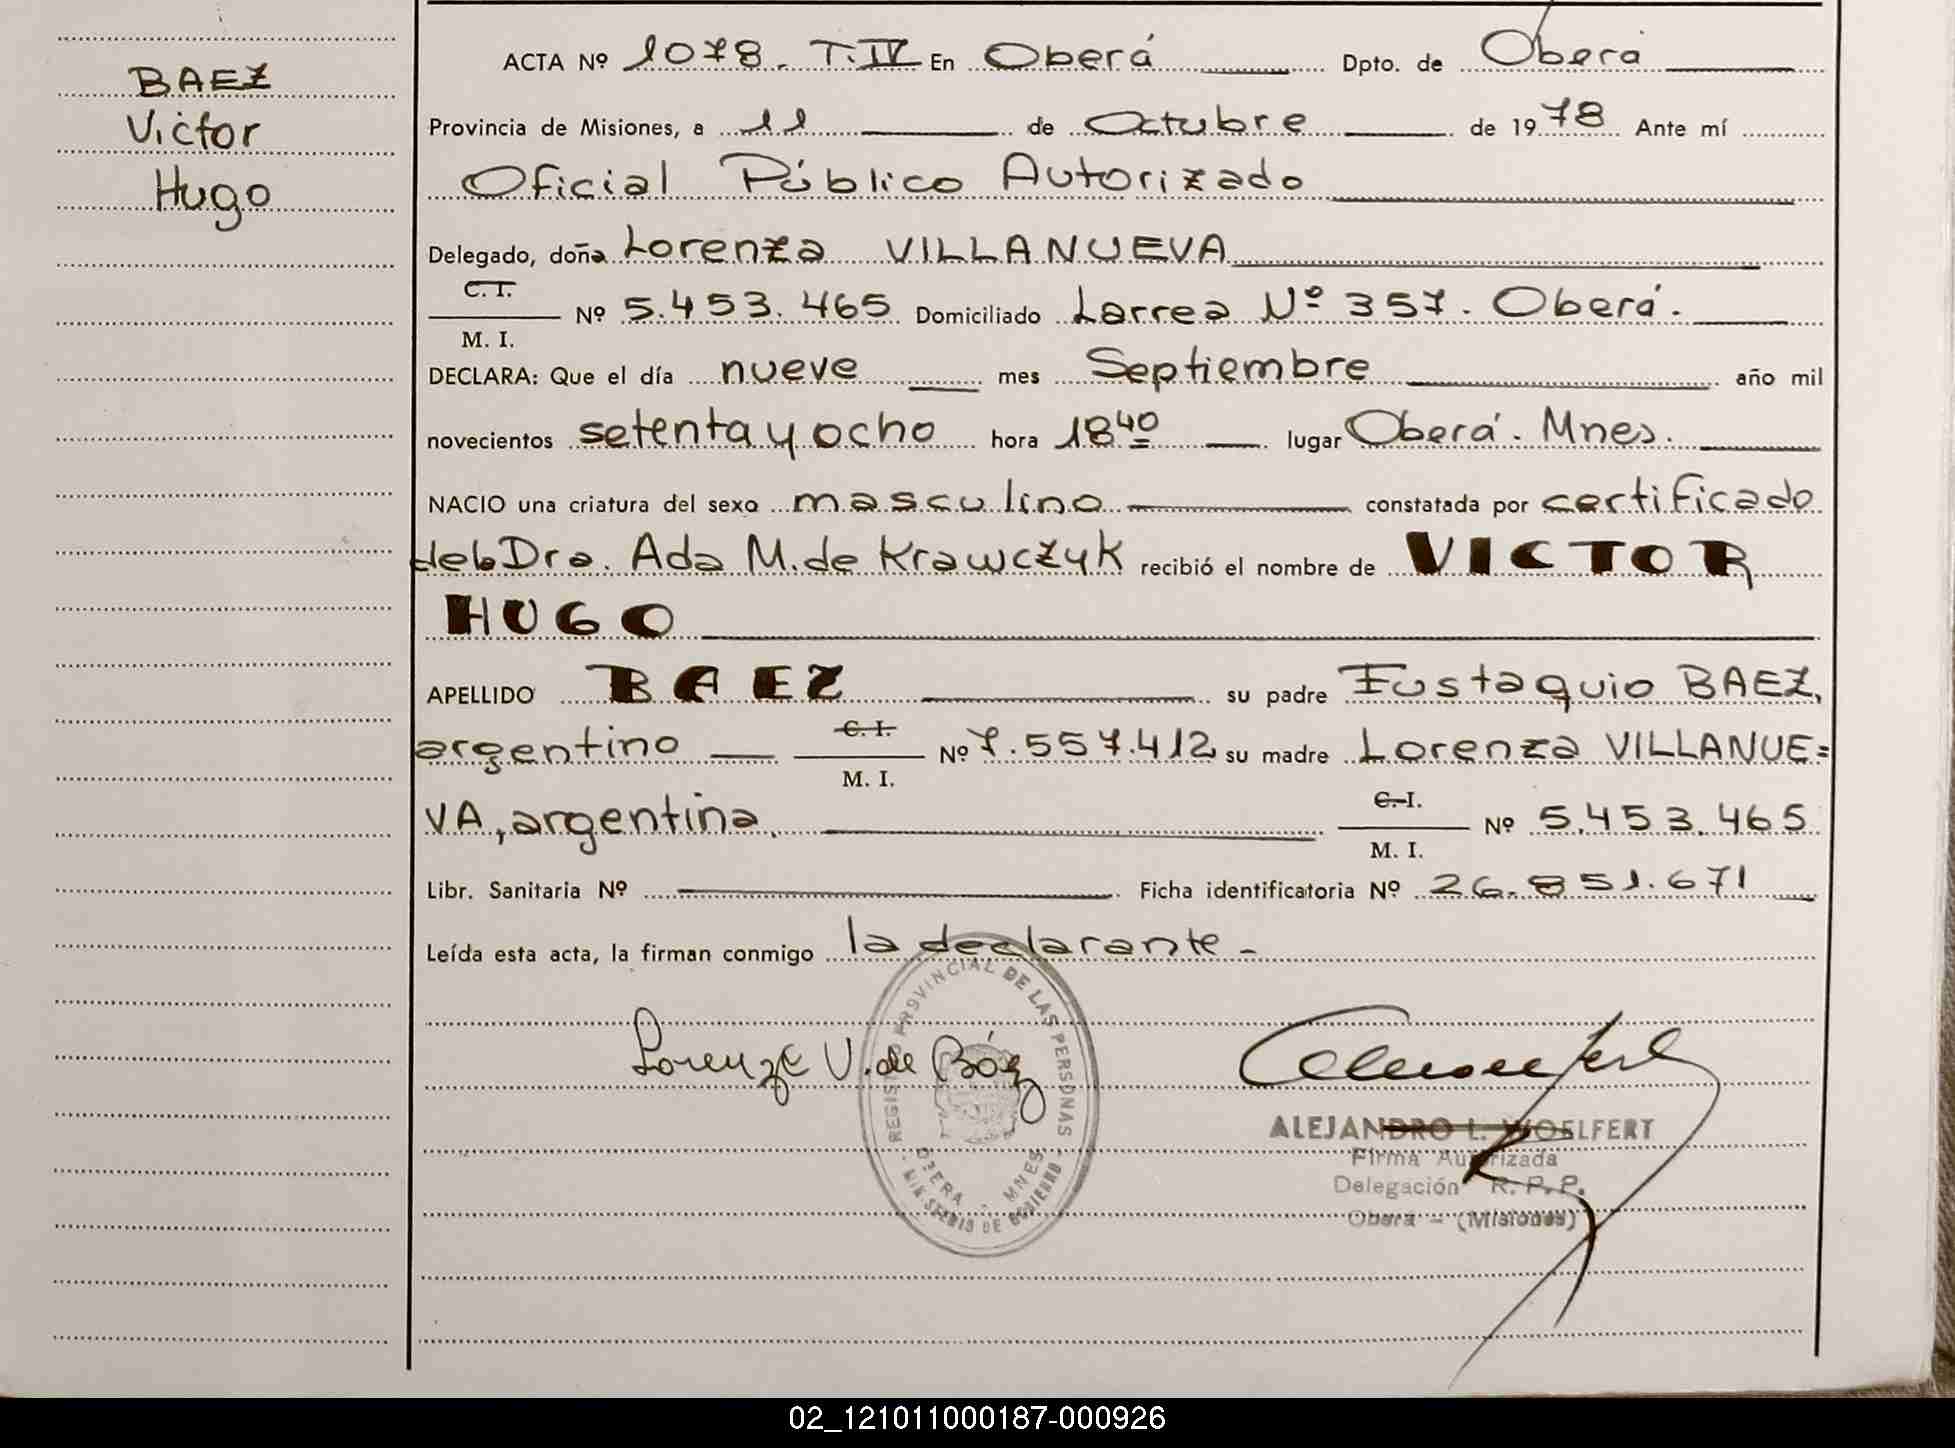 BAEZ
Victor
Hugo
ACTA Nº 1078. T.IV En Oberá Dpto. de Oberá
Provincia de Misiones, a 11 de Octubre de 1978 Ante mí
Oficial Público Autorizado
Delegado, doña Lorenza VILLANUEVA
C. I.
M. I.
Nº 5.453.465 Domiciliado Larrea Nº 357. Oberá.
DECLARA: Que el día nueve mes Septiembre año mil
novecientos setenta y ocho hora 18 40 lugar Oberá. Mnes.
NACIO una criatura del sexo masculino constatada por certificado
de la Dra. Ada M. de Krawczyk recibió el nombre de VICTOR
HUGO
APELLIDO BAEZ su padre Eustaquio BAEZ,
argentino C. I. M. I. Nº 7.557.412 su madre Lorenza VILLANUE=
VA, argentina. C. I. M. I. Nº 5.453.465
Libr. Sanitaria Nº Ficha identificatoria Nº 26.851.671
Leída esta acta, la firman conmigo la declarante -
Lorenza V. de Báez
REGISTRO PROVINCIAL DE LAS PERSONAS
OBERA - MNES
MINISTERIO DE GOBIERNO
ALEJANDRO L. WOELFERT
Firma Autorizada
Delegación R. P. P.
Oberá - (Misiones)
02_121011000187-000926